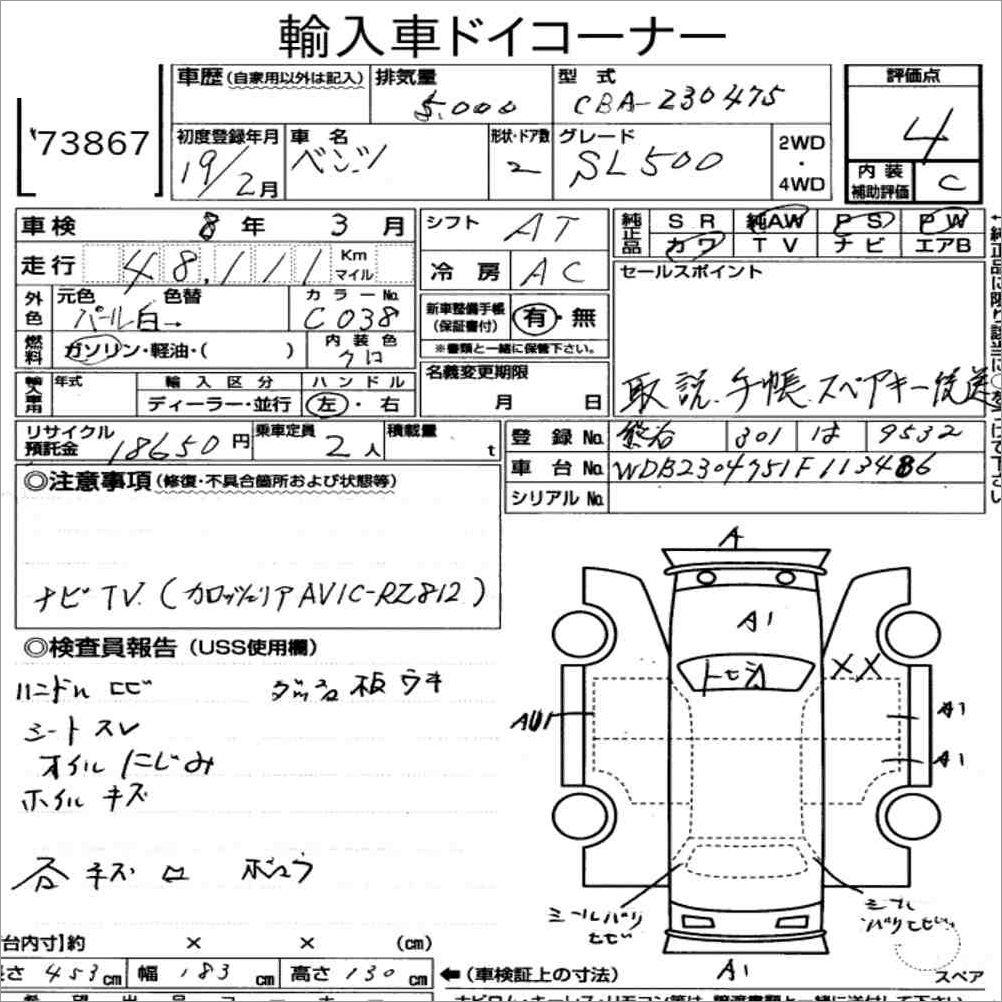 輸入車ドイコーナー
73867
車歴(自家用以外は記入) 排気量 5.000 型式 CBA-230475 評価点 4
初度登録年月 19/2月 車名 ベンツ 形状・ドア数 2 グレード SL500 2WD・4WD 内装補助評価 C
車検 8年 3月 シフト AT 純正品 SR 純AW PS PW
走行 48,111 Km マイル 冷房 AC カワ TV ナビ エアB
外色 元色 パール白→ 色替 カラーNo. C038 新車整備手帳(保証書付) 有・無 セールスポイント
燃料 ガソリン・軽油・( ) 内装色 クロ ※書類と一緒に保管下さい。
輸入車用 年式 輸入区分 ハンドル 名義変更期限
ディーラー・並行 左・右 月 日 取説.手帳.スペアキー後送
リサイクル預託金 18650円 乗車定員 2人 積載量 t 登録No. 熊谷 301 は 9532
車台No. WDB2304751F113486
シリアルNo.
◎注意事項(修復・不具合箇所および状態等)
ナビTV.(カロッツェリアAVIC-RZ812)
◎検査員報告(USS使用欄)
ハンドル ロビ ダッシュ板ウキ
シートスレ
オイルにじみ
ホイルキズ
A
A1
トビ
XX
AU1
A1
A1
A1
スペア
台内寸]約 × × (cm)
長さ 453cm 幅 183cm 高さ 130cm ←(車検証上の寸法)